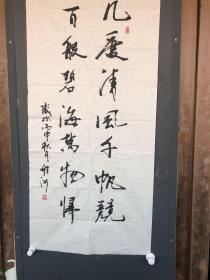 几度清风千帆竞
百般碧海万物归
岁次丙申秋月